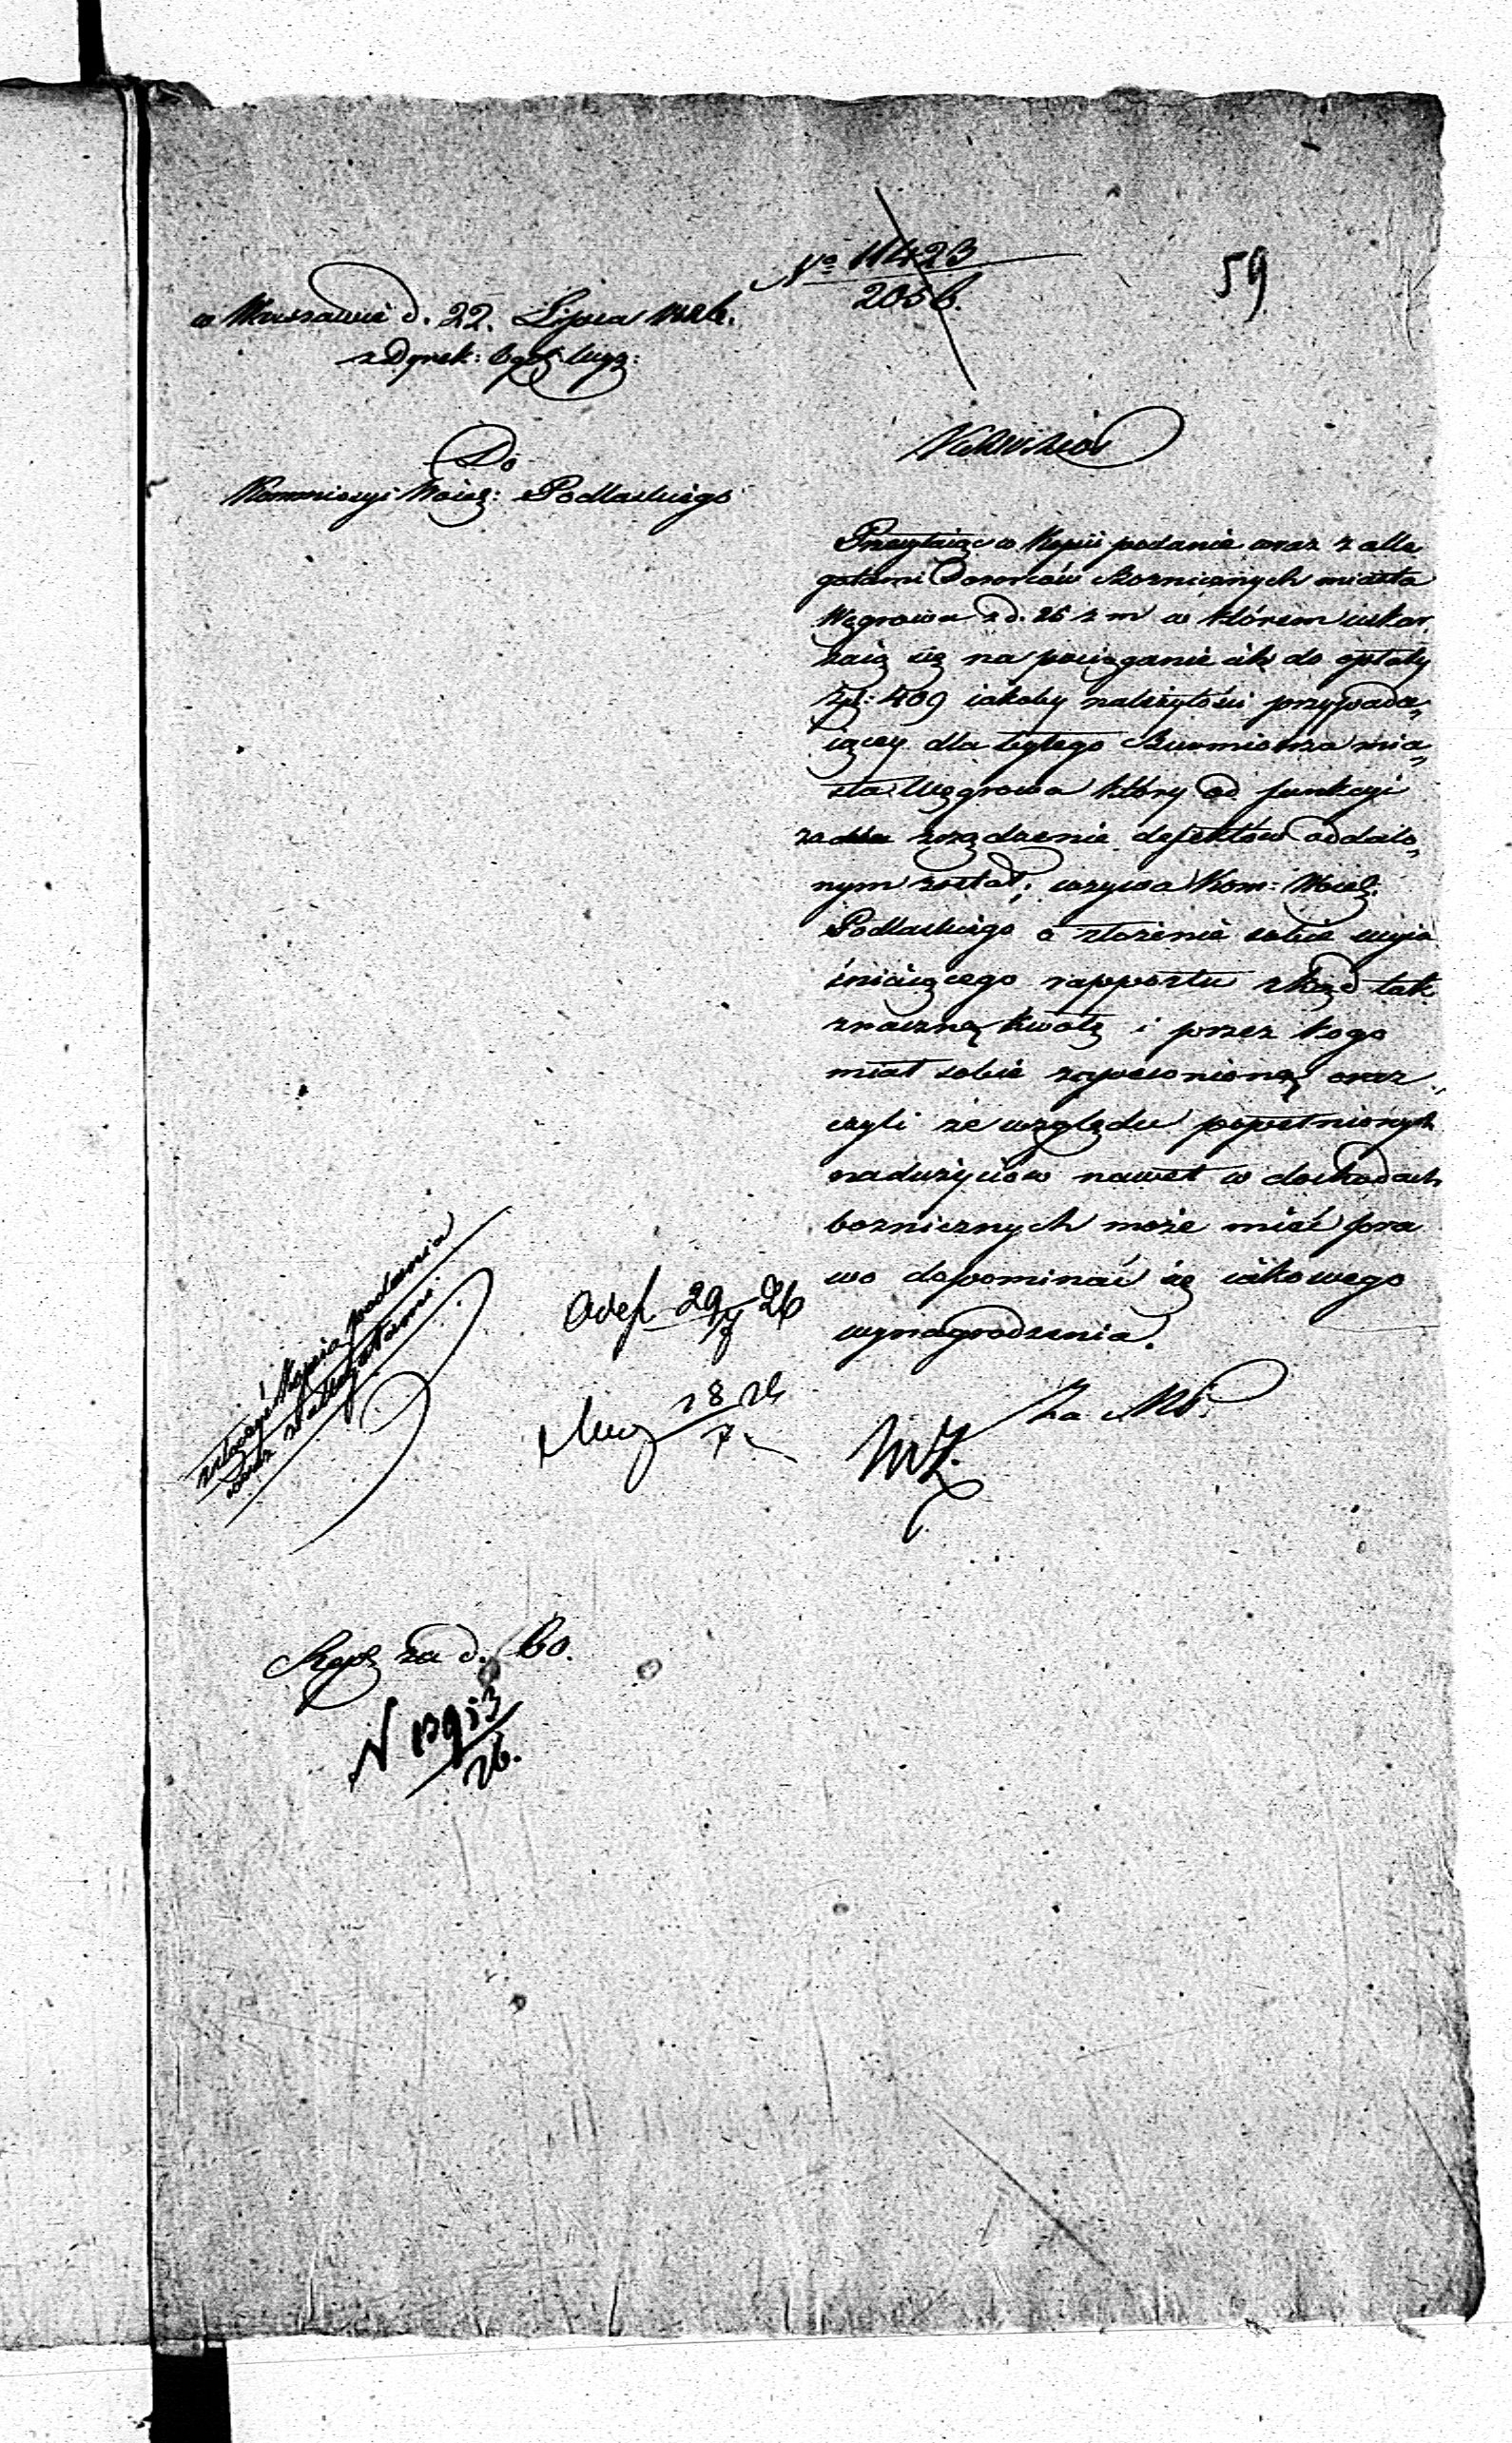 No 11423
2056.
59
w Warszawie d. 22. Lipca 1826.
z Dyrek:
Do
Kommissyi Woiew: Podlaskiego
Przesyłaiąc w kopii podanie wraz z alle
gatami Dozorców Boznicznych miasta
Węgrowa z d. 26 z m w którem uskar
żaią się na pociąganie ich do opłaty
Złp: 409 iakoby należytości przypada„
iącey dla byłego Burmistrza mia„
sta Węgrowa który od funkcyi
za zrządzenie defektów oddalo„
nym został; wzywa Kom: Woiew:
Podlaskiego o złożenie sobie wyia
śniaiącego rapportu zkąd tak
znaczną kwotę i przez kogo
miał sobie zapewnioną oraz
czyli ze względu popełnionych
nadużyciów nawet w dochodach
boznicznych może mieć pra
wo dopominać się iakowego
wynagrodzenia.
załączyć kopia podania
wraz z allegatami
29/7 26
28/7
Za
za d. 60.
N
26.